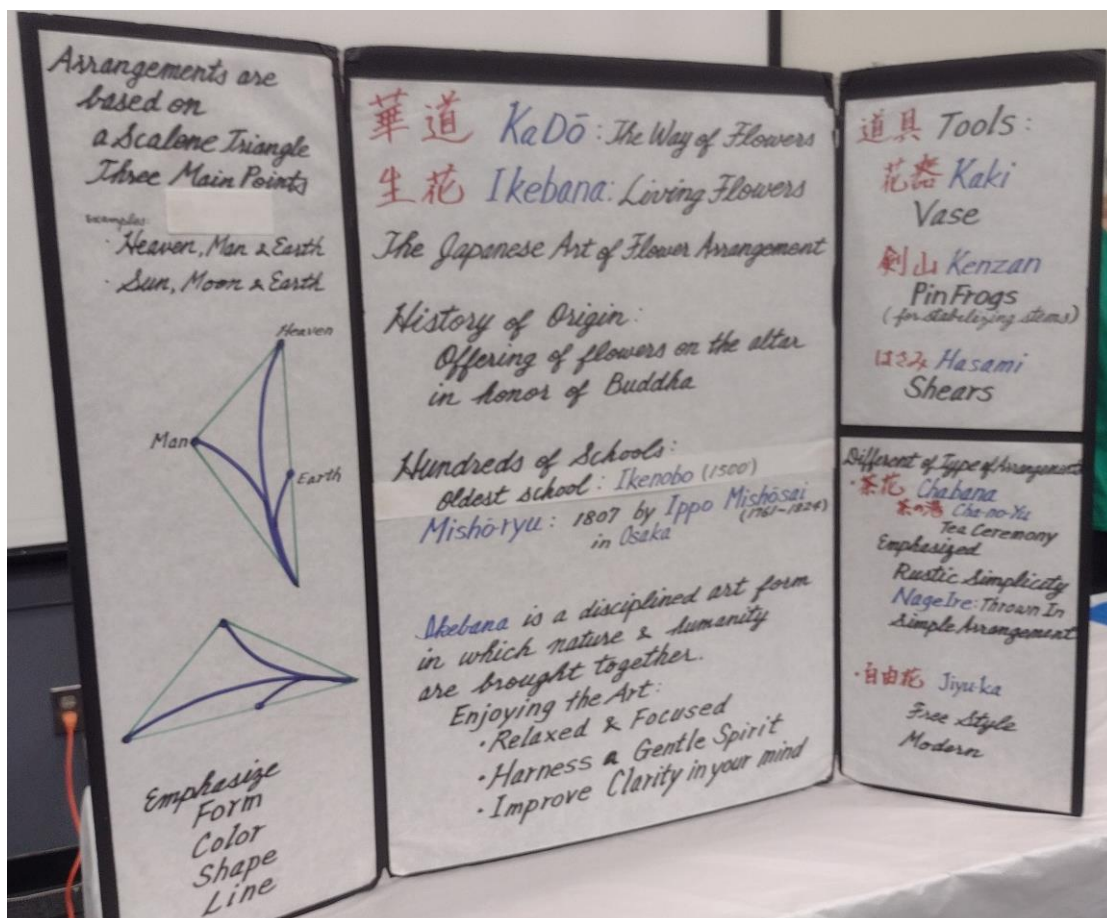 Arrangements are
based on
a Scalone Triangle
Three Main Points
examples:
· Heaven, Man & Earth
· Sun, Moon & Earth
Heaven
Man
Earth
Emphasize
Form
Color
Shape
Line
華道 KaDō: The Way of Flowers
生花 Ikebana: Living Flowers
The Japanese Art of Flower Arrangement
History of Origin:
Offering of flowers on the altar
in honor of Buddha
Hundreds of Schools:
oldest school: Ikenobo (1500)
Mishō-ryu: 1807 by Ippo Mishōsai
(1761-1824)
in Osaka
Ikebana is a disciplined art form
in which nature & humanity
are brought together.
Enjoying the Art:
· Relaxed & Focused
· Harness a Gentle Spirit
· Improve Clarity in your mind
道具 Tools:
花器 Kaki
Vase
剣山 Kenzan
Pin Frogs
(for stabilizing stems)
はさみ Hasami
Shears
Different of Type of Arrangement
· 茶花 Chabana
茶の湯 Cha-no-Yu
Tea Ceremony
Emphasized
Rustic Simplicity
NageIre: Thrown In
Simple Arrangement
· 自由花 Jiyu-ka
Free Style
Modern